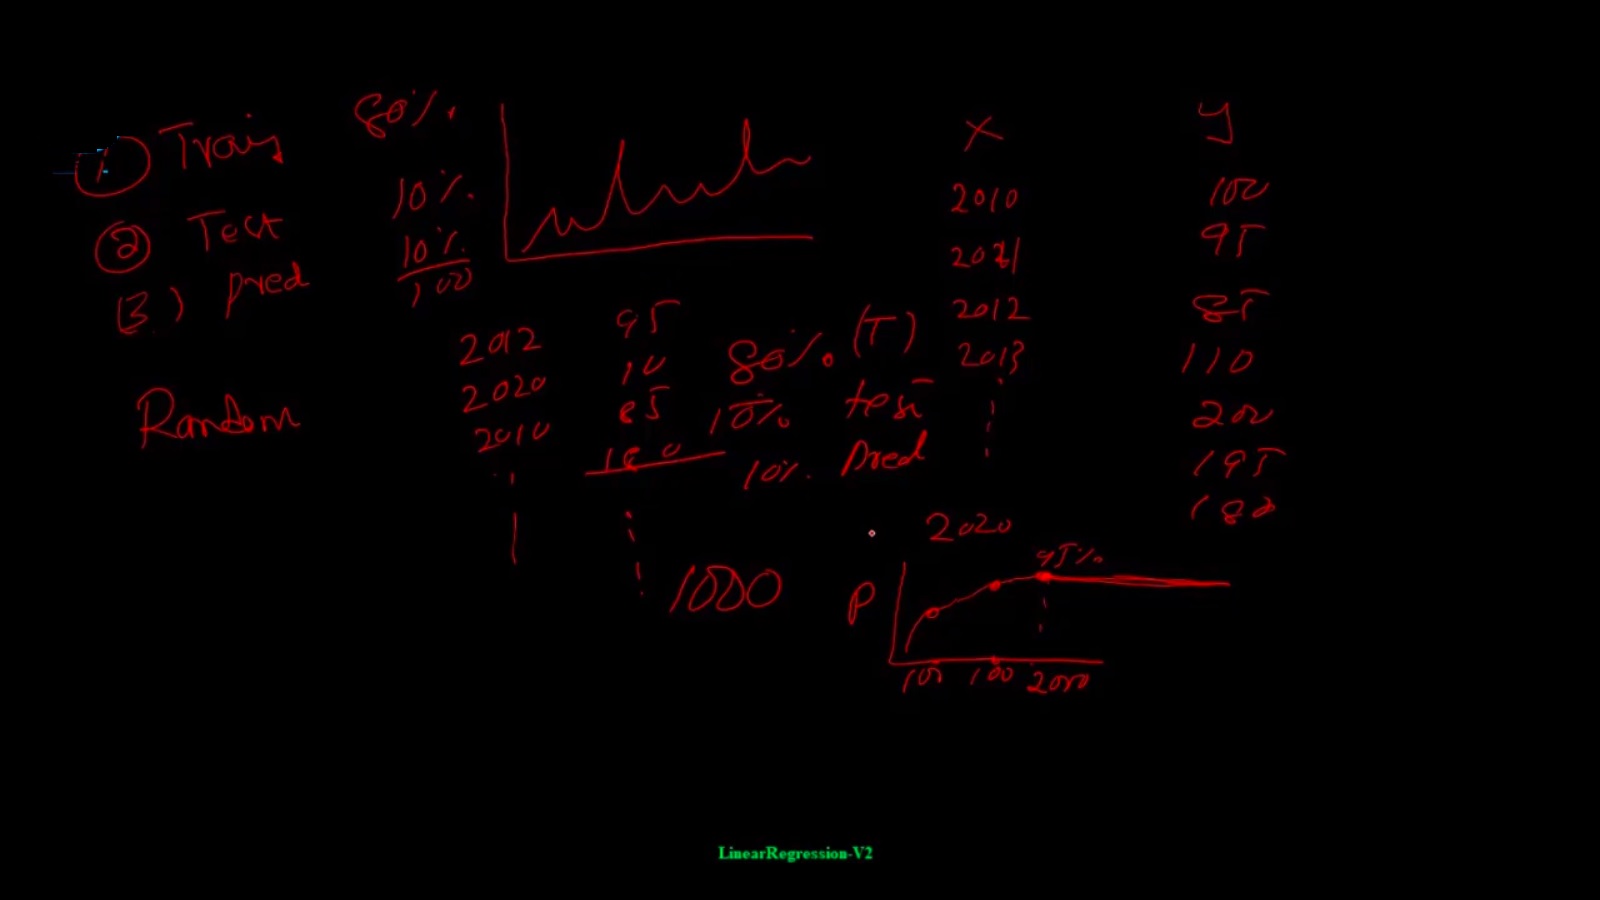 1 Train 80%.
2 Test 10%.
3) pred 10%.
100
Random
2012 95
2020 10
2010 85
80% (T)
10% test
10% Pred
1000
X Y
2010 100
95
2012 85
2013 110
200
195
180
2020
95%
P
100 100 2000
LinearRegression-V2